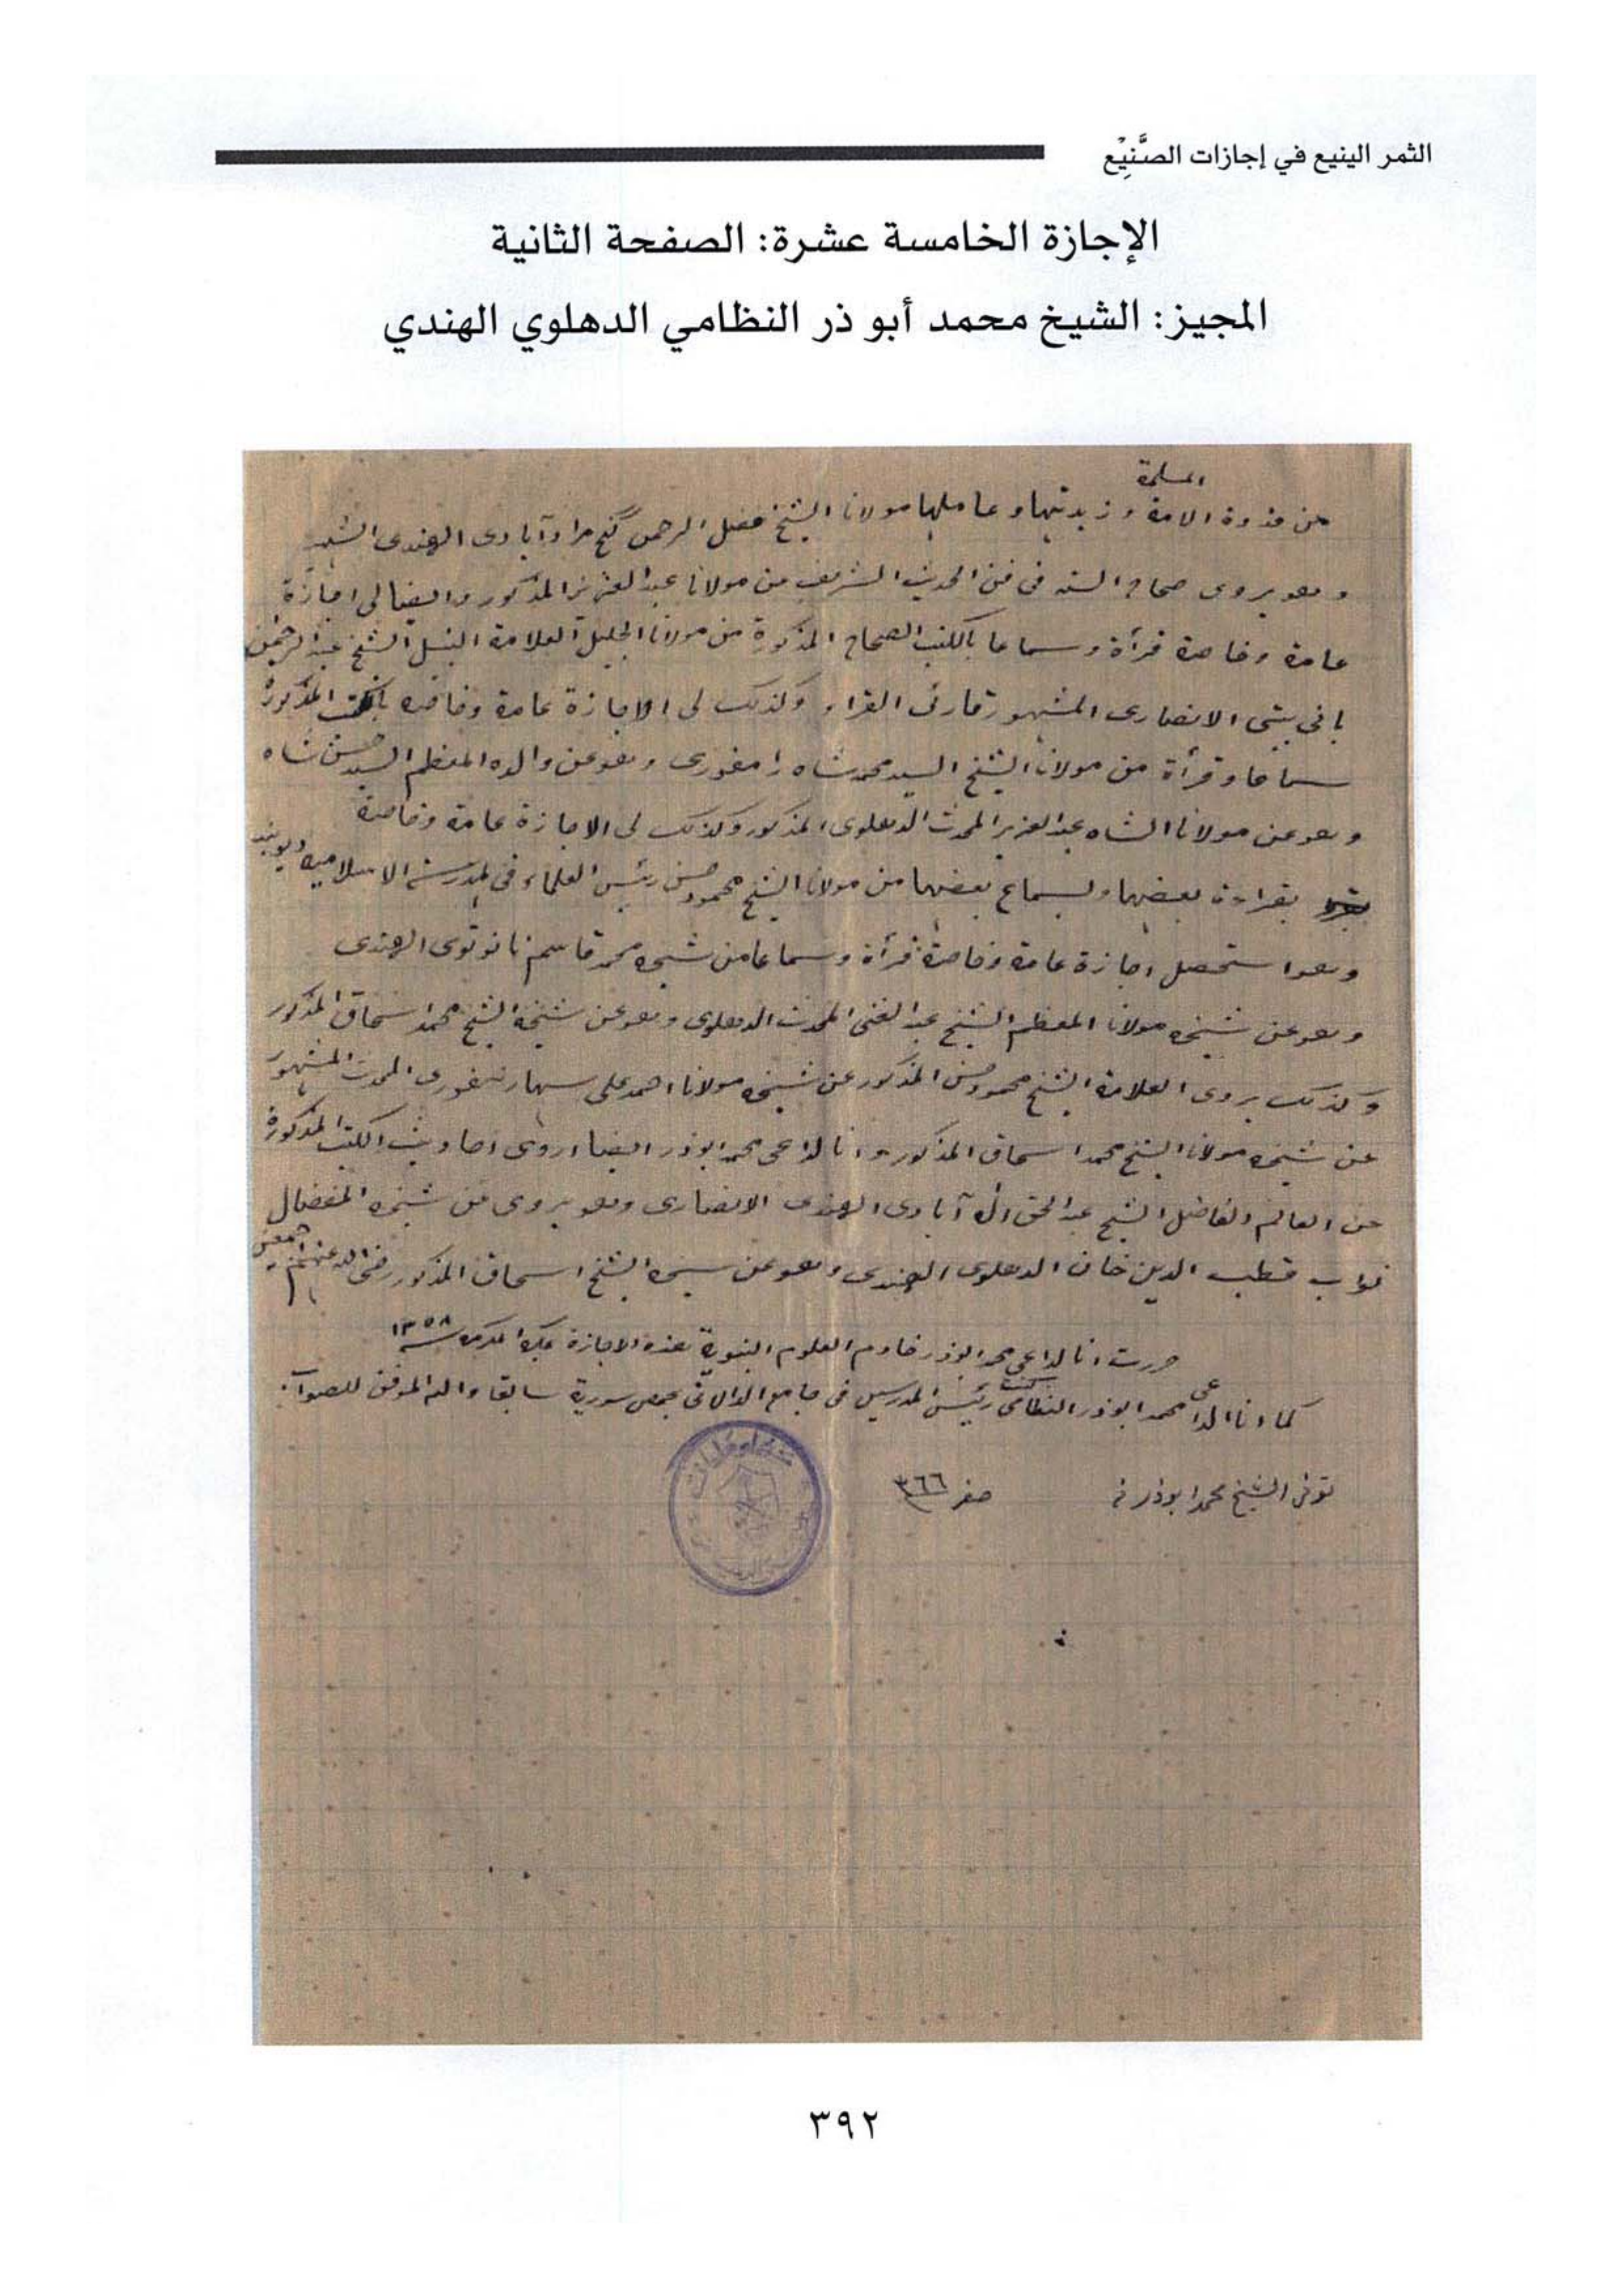 الثمر الينيع في إجازات الصَّنِيْع
الإجازة الخامسة عشرة: الصفحة الثانية
المجيز: الشيخ محمد أبو ذر النظامي الدهلوي الهندي
المسلمة
من قدوة الامة و زبدتها و عاملها مولانا الشيخ فضل الرحمن گنج مرادآبادى الهندى الشهير
وهو يروى صحاح الستة فى فن الحديث الشريف من مولانا عبد العزيز المذكور وايضا لى اجازة
عامة وخاصة قرأة وسماعا بالكتب الصحاح المذكورة من مولانا الجليل العلامة النبيل الشيخ عبد الرحمن
پانى پتى الانصارى المشهور قارئ القراء وكذلك لى الاجازة عامة وخاصه بالكتب المذكورة
سماعا وقرأة من مولانا الشيخ السيد محمد شاه رامفورى وهو عن والده المعظم السيد حسن شاه
وهو عن مولانا الشاه عبد العزيز المحدث الدهلوى المذكور وكذلك لى الاجازة عامة وخاصة
بقراءة بعضها وبسماع بعضها من مولانا الشيخ محمود حسن رئيس العلماء فى المدرسة الاسلاميه ديوبند
وهو استحصل اجازة عامة وخاصة قرأة وسماعا من شيخه محمد قاسم نانوتوى الهندى
وهو عن شيخه مولانا المعظم الشيخ عبد الغنى المحدث الدهلوى وهو عن شيخه الشيخ محمد اسحاق المذكور
وكذلك يروى العلامة الشيخ محمود حسن المذكور عن شيخه مولانا احمد على سهارنفورى المحدث المشهور
عن شيخه مولانا الشيخ محمد اسحاق المذكور وانا الداعى محمد ابوذر ايضا اروى احاديث الكتب المذكورة
عن العالم الفاضل الشيخ عبد الحق اله آبادى الهندى الانصارى وهو يروى عن شيخه المفضال
نواب قطب الدين خان الدهلوى الهندى وهو عن شيخه الشيخ اسحاق المذكور رضى الله عنهم اجمعين
حررت انا الداعى محمد ابوذر خادم العلوم النبوية هذه الاجازة بمكة المكرمه سنة ١٣٥٨
كما انا الداعى محمد ابوذر النظامى كنت رئيس المدرسين فى جامع الدالاتى بحمص سورية سابقا والله الموفق للصواب.
توفى الشيخ محمد ابوذر فى صفر ٣٦٦
٣٩٢